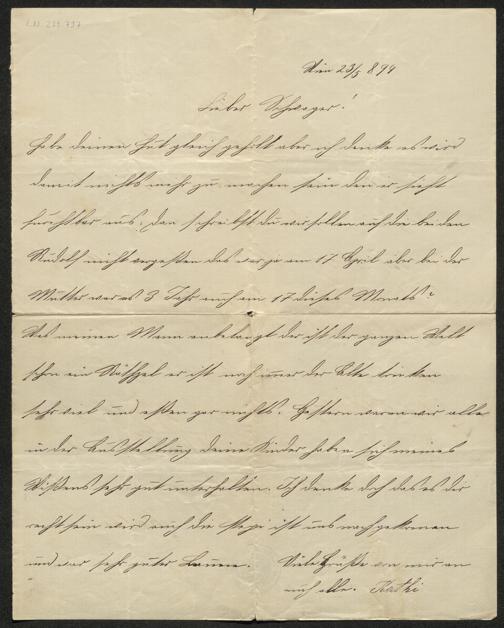 Wien 23/5 899
Lieber Schwager!
Habe deinen Hut gleich geholt aber ich denke es wird
damit nichts mehr zu machen sein den er sieht
furchtbar aus. Dan schreibst du wir sollen auf die beiden
Rudolf nicht vergeßen das war ja am 17 April aber bei der
Mutter war es 3 Jahr auch am 17 dieses Monats
Was meinen Mann anbelangt der ist der ganzen Welt
schon ein Räthsel er ist noch immer der Alte trinken
sehr viel und eßen gar nichts. Gestern waren wir alle
in der Ausstellung deine Kinder haben sich meines
Wißens sehr gut unterhalten. Ich denke doch das es dir
recht sein wird auch die Pepi ist uns nachgekommen
und war sehr guter Laune. Viele Grüße von mir an
euch alle. Kathi